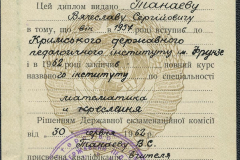 Цей диплом видано Танаєву
Вячеславу Сергійовичу
про те, що він в 1957 році вступив до
Кримського державного
педагогічного інституту ім. Фрунзе
і в 1962 році закінчив повний курс
названого інституту
по спеціальності
математика
і креслення
Рішенням Державної екзаменаційної комісії
від 30 червня 1962 р.
Танаєву В.С.
кваліфікацію вчителя